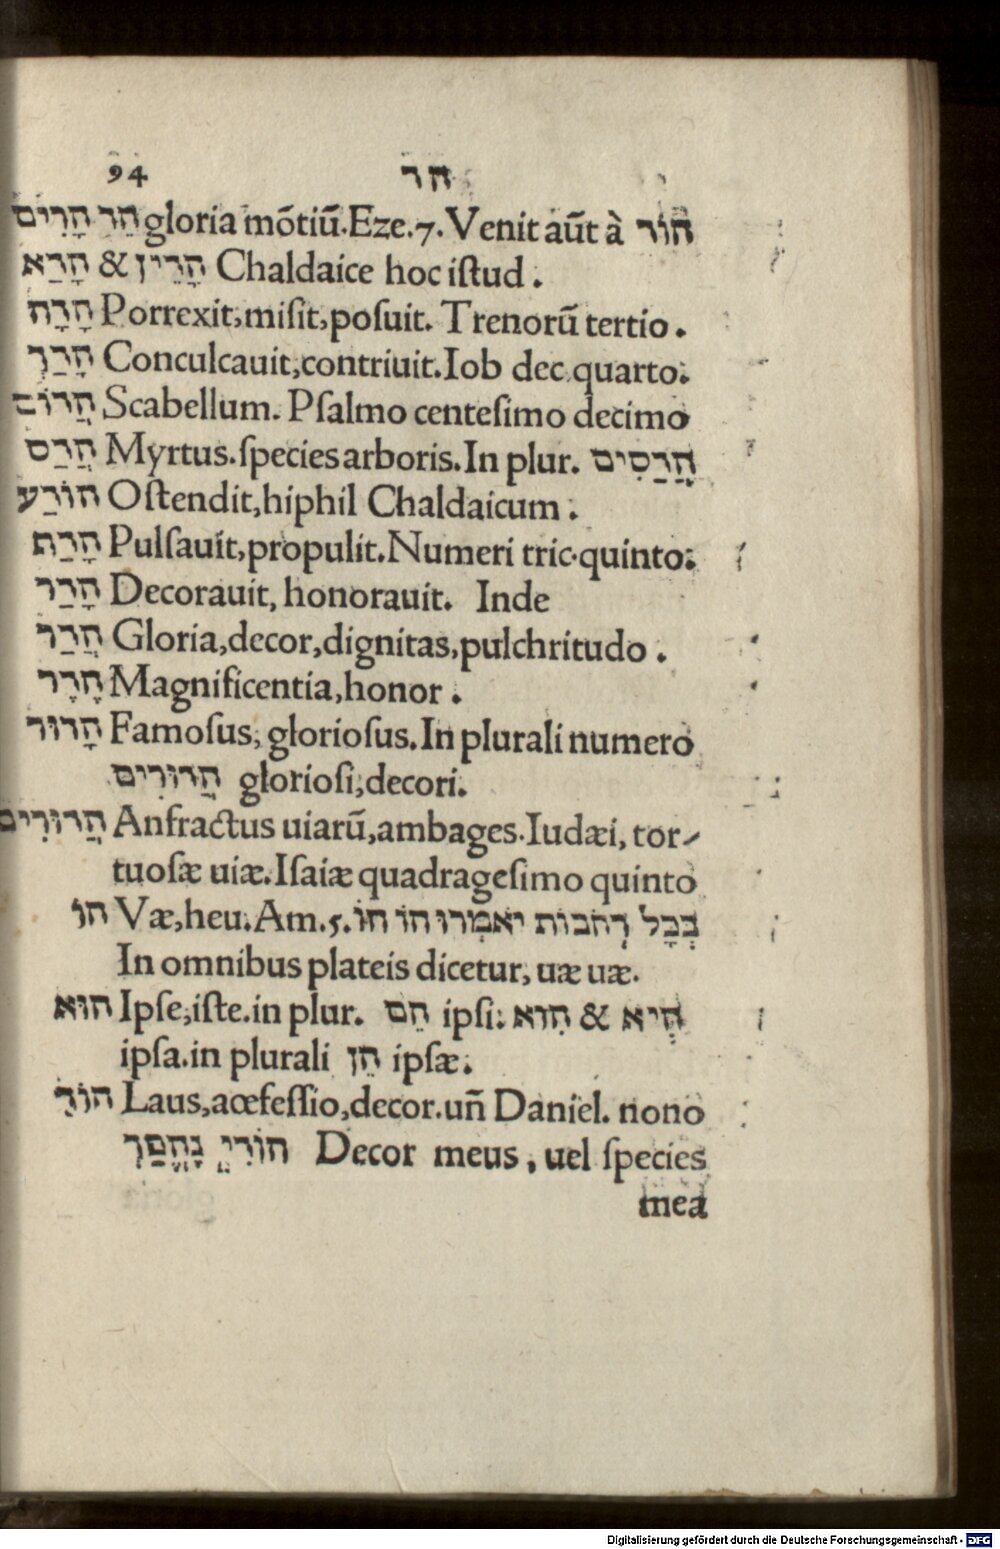 94 הד
הַד הָרִים gloria mõtiũ. Eze. 7. Venit aũt à הוֹד
הָדֵין & הָדָא Chaldaice hoc iſtud.
הָדָה Porrexit, miſit, poſuit. Trenorũ tertio.
הָדַךְ Conculcauit, contriuit. Iob dec. quarto.
הֲדוֹם Scabellum. Pſalmo centeſimo decimo
הֲדַס Myrtus. ſpecies arboris. In plur. הֲדַסִּים
הוֹדַע Oſtendit, hiphil Chaldaicum.
הָדַף Pulſauit, propulit. Numeri tric. quinto.
הָדַר Decorauit, honorauit. Inde
הֲדַר Gloria, decor, dignitas, pulchritudo.
הֶדֶר Magnificentia, honor.
הָדוּר Famoſus, glorioſus. In plurali numero
הֲדוּרִים glorioſi, decori.
הֲדוּרִים Anfractus uiarũ, ambages. Iudæi, tor-
tuoſæ uiæ. Iſaiæ quadrageſimo quinto
הוֹ Væ, heu. Am. 5. בְּכָל רְחֹבוֹת יֹאמְרוּ הוֹ הוֹ
In omnibus plateis dicetur, uæ uæ.
הוּא Ipſe, iſte. in plur. הֵם ipſi: הִוא & הִיא
ipſa. in plurali הֵן ipſæ.
הוֹד Laus, aœfeſſio, decor. uñ Daniel. nono
הוֹדִי נֶהְפַּךְ Decor meus, uel ſpecies
mea
Digitalisierung gefördert durch die Deutsche Forschungsgemeinschaft - DFG